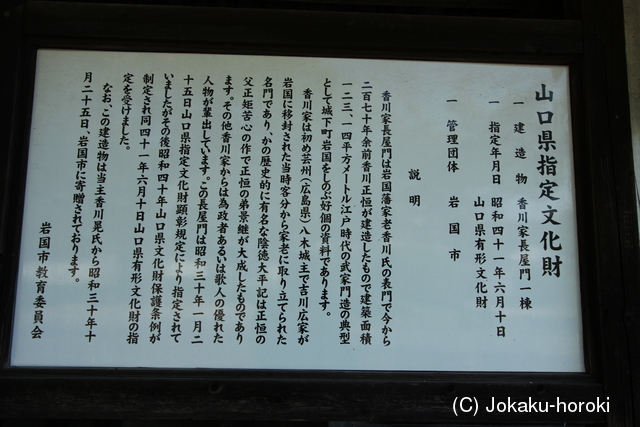 山口県指定文化財
一 建造物 香川家長屋門一棟
一 指定年月日 昭和四十一年六月十日
山口県有形文化財
一 管理団体 岩国市
説明
香川家長屋門は岩国藩家老香川氏の表門で今から
二百七十年余前香川正恒が建造したもので建築面積
一二三、一四平方メートル江戸時代の武家門造の典型
として城下町岩国をしのぶ好個の資料であります。
香川家は初め芸州(広島県)八木城主で吉川広家が
岩国に移封された当時客分から家老に取り立てられた
名門であり、かの歴史的に有名な陰徳太平記は正恒の
父正矩苦心の作で正恒の弟景継が大成したものであり
ます。その他香川家からは為政者あるいは歌人の優れた
人物が輩出しています。この長屋門は昭和三十年一月二
十五日山口県指定文化財顕彰規定により指定されて
いましたがその後昭和四十年山口県文化財保護条例が
制定され同四十一年六月十日山口県有形文化財の指
定を受けました。
なお、この建造物は当主香川晃氏から昭和三十年十
月二十五日、岩国市に寄贈されております。
岩国市教育委員会
(C) Jokaku-horoki